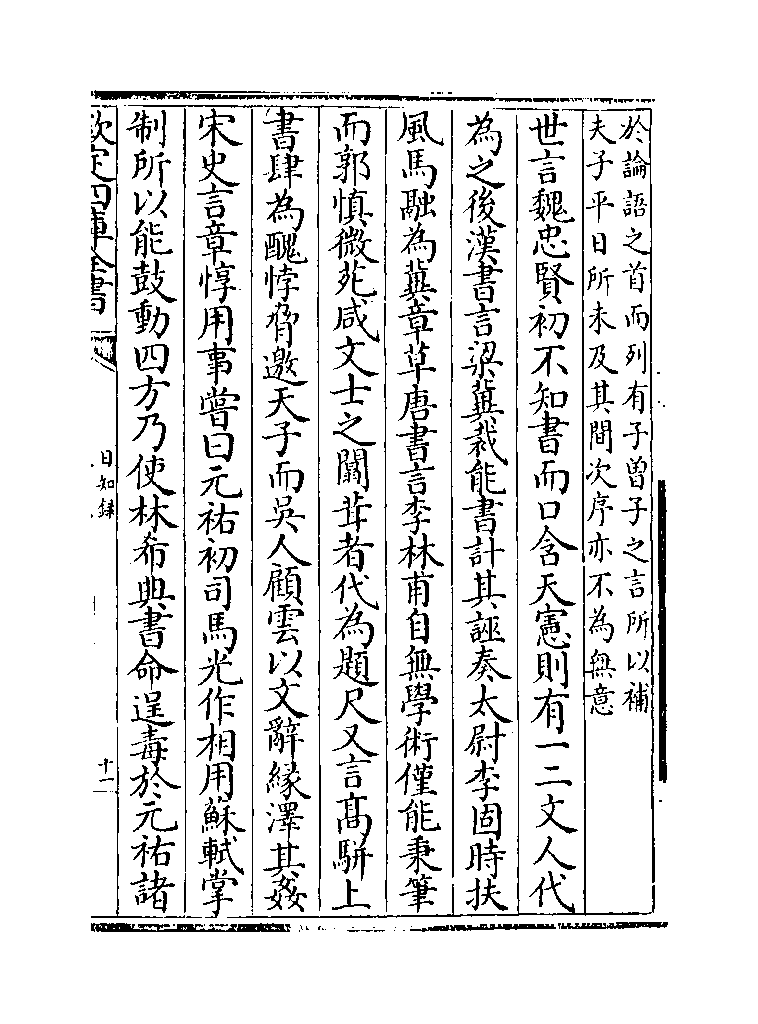 於論語之首而列有子曽子之言所以補
夫子平日所未及其間次序亦不為無意
世言魏忠賢初不知書而口含天憲則有一二文人代
為之後漢書言梁冀裁能書計其誣奏太尉李固時扶
風馬融為冀章草唐書言李林甫自無學術僅能秉筆
而郭慎微苑咸文士之闒茸者代為題尺又言髙駢上
書肆為醜悖脅邀天子而吳人顧雲以文辭緣澤其姦
宋史言章惇用事嘗曰元祐初司馬光作相用蘇軾掌
制所以能鼓動四方乃使林希典書命逞毒於元祐諸
欽定四庫全書
日知録
十二